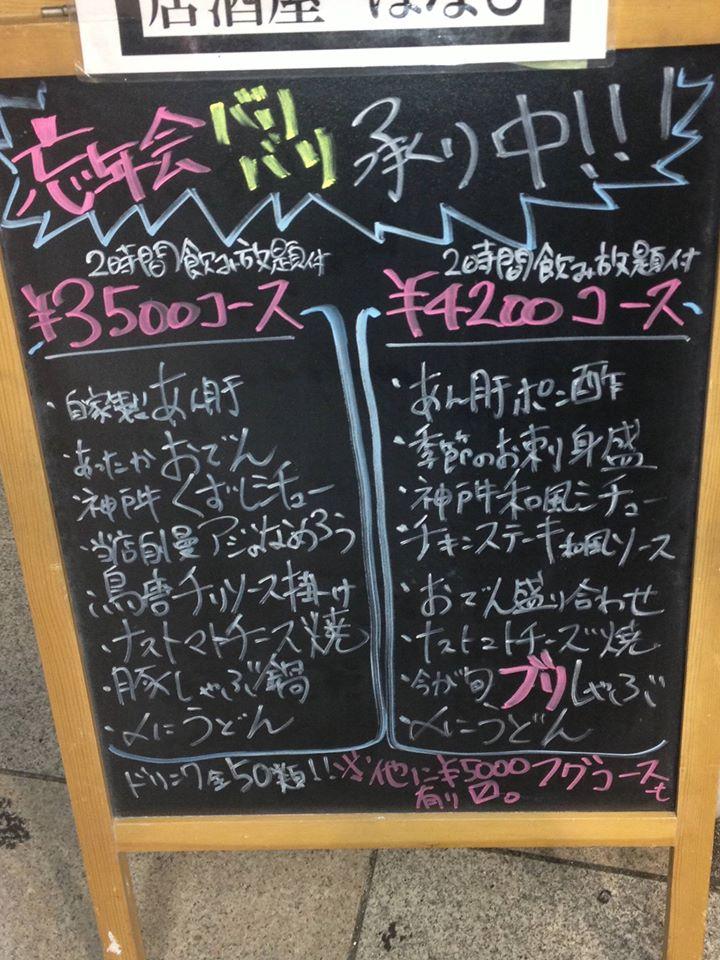 居酒屋 はなび
忘年会 バリバリ 承り中!!!
2時間飲み放題付
¥3500コース
・自家製あん肝
・あったかおでん
・神戸牛くずしシチュー
・当店自慢アジのなめろう
・鳥唐チリソース掛け
・ナストマトチーズ焼
・豚しゃぶ鍋
・〆にうどん
2時間飲み放題付
¥4200コース
・あん肝ポン酢
・季節のお刺身盛
・神戸牛和風シチュー
・チキンステーキ和風ソース
・おでん盛り合わせ
・ナストマトチーズ焼
・今が旬ブリしゃぶ
・〆にうどん
ドリンク全50類!!
※他に¥5000フグコースも
有り〼。